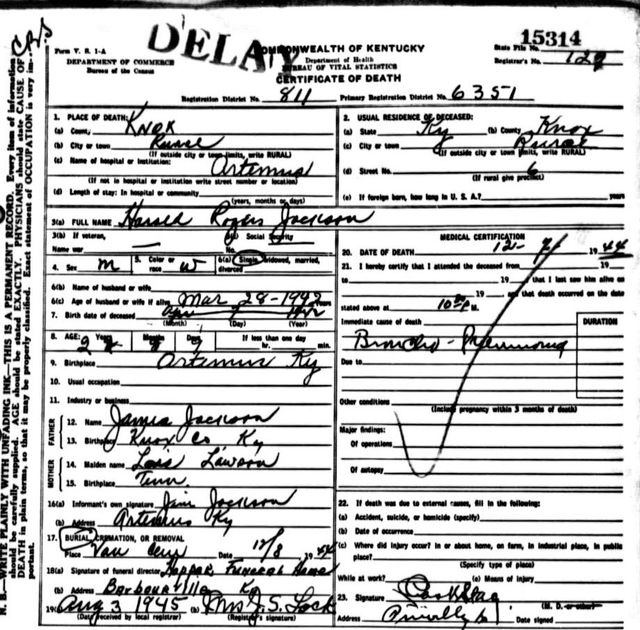 CRS
DELAY
15314
Form V. S. 1-A
DEPARTMENT OF COMMERCE
Bureau of the Census
COMMONWEALTH OF KENTUCKY
Department of Health
BUREAU OF VITAL STATISTICS
CERTIFICATE OF DEATH
State File No.
Registrar's No. 129
Registration District No. 811 Primary Registration District No. 6351
N. B.—WRITE PLAINLY WITH UNFADING INK—THIS IS A PERMANENT RECORD. Every item of information
should be carefully supplied. AGE should be stated EXACTLY. PHYSICIANS should state CAUSE OF
DEATH in plain terms, so that it may be properly classified. Exact statement of OCCUPATION is very im-
portant.
1. PLACE OF DEATH:
(a) County, Knox
(b) City or town Rural
(If outside city or town limits, write RURAL)
(c) Name of hospital or institution: Artemus
(If not in hospital or institution write street number or location)
(d) Length of stay: In hospital or community
(years, months or days)
2. USUAL RESIDENCE OF DECEASED:
(a) State Ky (b) County Knox
(c) City or town Rural
(If outside city or town limits, write RURAL)
(d) Street No. 6
(If rural give precinct)
(e) If foreign born, how long in U. S. A.? years
3(a) FULL NAME Harold Roger Jackson
3(b) If veteran,
Name war —
3(c) Social Security
No. —
4. Sex M
5. Color or
race W
6(a) Single, widowed, married,
divorced
6(b) Name of husband or wife
6(c) Age of husband or wife if alive Mar 28-1942
7. Birth date of deceased
(Month) (Day) (Year)
8. AGE: Years Months Days If less than one day
2 hr. min.
9. Birthplace Artemus Ky
10. Usual occupation
11. Industry or business
FATHER
12. Name James Jackson
13. Birthplace Knox Co, Ky
MOTHER
14. Maiden name Lois Lawson
15. Birthplace Tenn
16(a) Informant's own signature Jim Jackson
(b) Address Artemus Ky
17. BURIAL, CREMATION, OR REMOVAL
Place Date 12/8 1944
18(a) Signature of funeral director Hopper Funeral Home
(b) Address Barbourville Ky
19(a) Aug 3 1945 (b) Mrs J. S. Lock
(Date received by local registrar) (Registrar's signature)
MEDICAL CERTIFICATION
20. DATE OF DEATH 12- 1944
21. I hereby certify that I attended the deceased from 19
to 19 that I last saw him alive on
19 and that death occurred on the date
stated above at 10 M
Immediate cause of death
DURATION
Broncho-Pneumonia
Due to
Other conditions
(Include pregnancy within 3 months of death)
Major findings:
Of operations
Of autopsy
22. If death was due to external causes, fill in the following:
(a) Accident, suicide, or homicide (specify)
(b) Date of occurrence
(c) Where did injury occur? In or about home, on farm, in industrial place, in public
place?
(Specify type of place)
While at work? (e) Means of injury
23. Signature
(M. D. or other)
Address Date signed